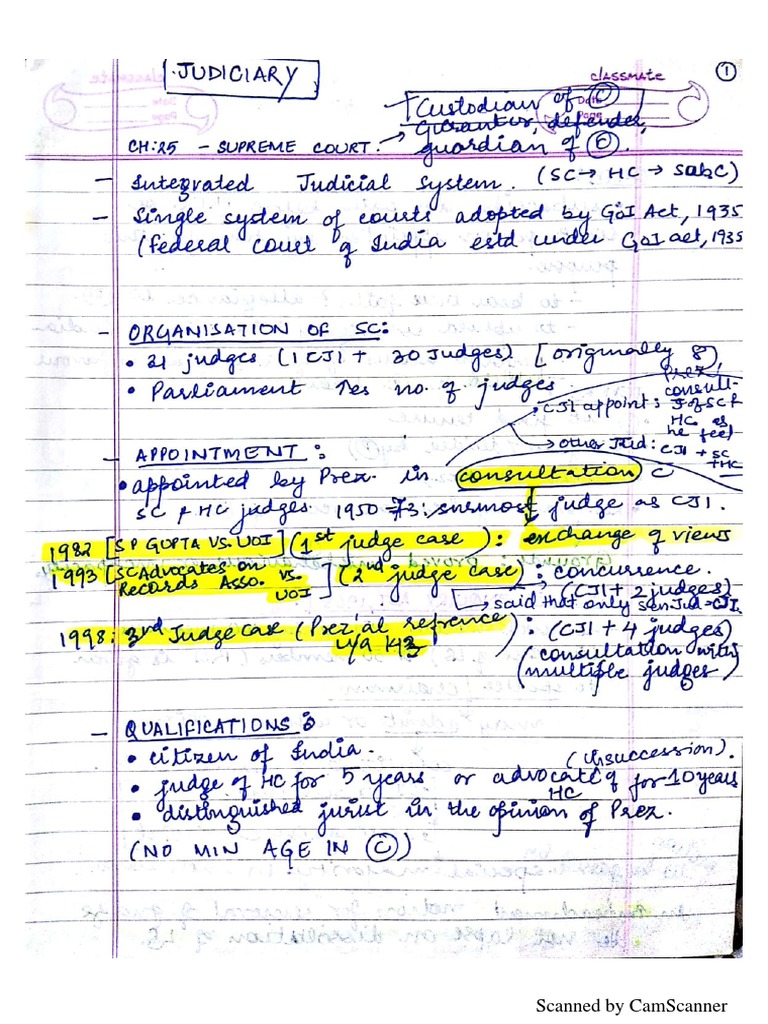 JUDICIARY
classmate
1
Date
Page
Custodian of Ⓒ
CH:25 - SUPREME COURT: → Grantor, defender, guardian of Ⓒ.
- Integrated Judicial System. (SC → HC → SubC)
- Single system of courts adopted by GoI Act, 1935
(federal court of India estd under GoI act, 1935
- ORGANISATION OF SC:
• 31 judges (1 CJI + 30 Judges) [originally 8)
• Parliament ↑es no. of judges
• CJI appoint: Prez consult- J of SC & HC as he feel
→ other Jud: CJI + SC + HC
- APPOINTMENT:
• appointed by Prez. in consultation c
SC & HC judges. 1950-73: snrmost judge as CJI.
1982 [S P GUPTA VS. UOI] (1st judge case): exchange of views
1993 [SC Advocates on Records Asso. vs. UOI] (2nd judge case): concurrence.
(CJI + 2 judges)
→ said that only sen Jud = CJI.
1998: 3rd Judge Case (Prez'al refrence) : (CJI + 4 judges)
u/a 143
(consultation with
multiple judges)
- QUALIFICATIONS:
• citizen of India.
(in succession).
• judge of HC for 5 years or advocate of HC for 10 years
• distinguished jurist in the opinion of Prez.
(NO MIN AGE IN Ⓒ)
Scanned by CamScanner